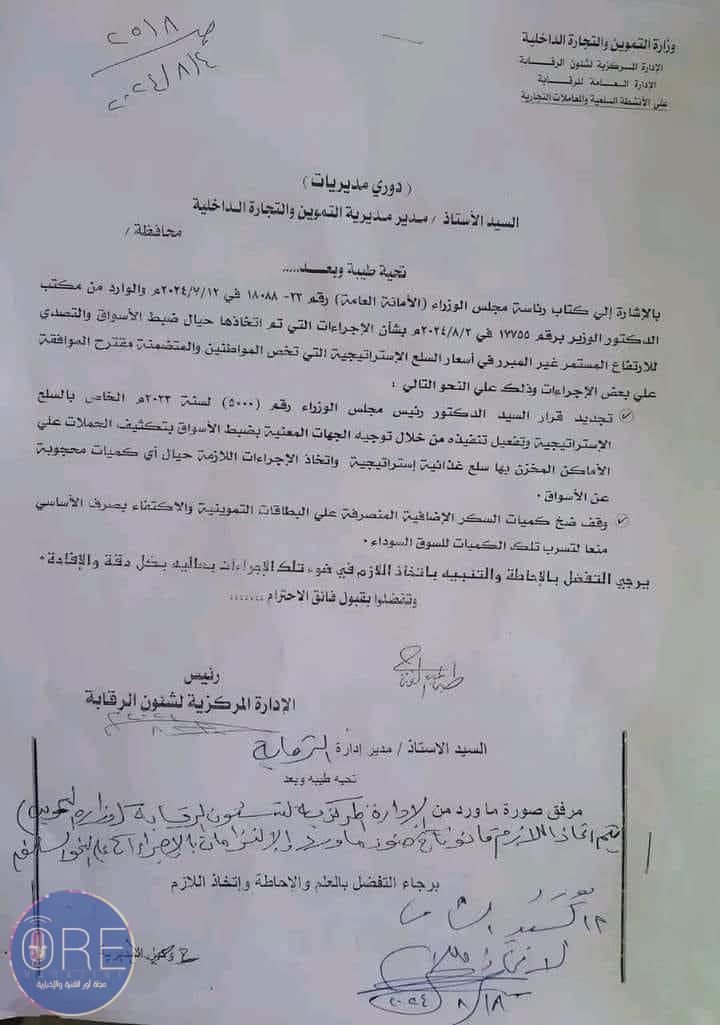 وزارة التموين والتجارة الداخلية
الإدارة المركزية لشئون الرقابة
الإدارة العامة للرقابة
على الأنشطة السلعية والمعاملات التجارية
٢٥١٨
٢٠٢٤/٨/٤
( دوري مديريات )
السيد الأستاذ / مدير مديرية التموين والتجارة الداخلية
محافظة /
تحية طيبة وبعد.....
بالإشارة إلي كتاب رئاسة مجلس الوزراء (الأمانة العامة) رقم ٢٣- ١٨٠٨٨ في ٢٠٢٤/٧/١٢م والوارد من مكتب
الدكتور الوزير برقم ١٧٧٥٥ في ٢٠٢٤/٨/٢م بشأن الإجراءات التي تم اتخاذها حيال ضبط الأسواق والتصدي
للارتفاع المستمر غير المبرر في أسعار السلع الإستراتيجية التي تخص المواطنين والمتضمنة مقترح الموافقة
علي بعض الإجراءات وذلك علي النحو التالي :
تجديد قرار السيد الدكتور رئيس مجلس الوزراء رقم (٥٠٠٠) لسنة ٢٠٢٣م الخاص بالسلع
الإستراتيجية وتفعيل تنفيذه من خلال توجيه الجهات المعنية بضبط الأسواق بتكثيف الحملات علي
الأماكن المخزن بها سلع غذائية إستراتيجية واتخاذ الإجراءات اللازمة حيال أي كميات محجوبة
عن الأسواق .
وقف ضخ كميات السكر الإضافية المنصرفة علي البطاقات التموينية والاكتفاء بصرف الأساسي
منعا لتسرب تلك الكميات للسوق السوداء .
يرجي التفضل بالإحاطة والتنبيه باتخاذ اللازم في ضوء تلك الإجراءات بعاليه بكل دقة والإفادة .
وتفضلوا بقبول فائق الاحترام .......
رئيس
الإدارة المركزية لشئون الرقابة
السيد الاستاذ / مدير إدارة الرقابة
تحيه طيبه وبعد
مرفق صورة ما ورد من الإدارة المركزية لشئون الرقابة (وزارة التموين)
يتم اتخاذ اللازم قانونا في ضوء ما ورد والإلتزام بالإجراءات علي النحو
برجاء التفضل بالعلم والإحاطة وإتخاذ اللازم
وكيل المديرية
٢٠٢٤/٨/١٨
ORE
MAGAZINE
مجلة أور الفنية والإخبارية